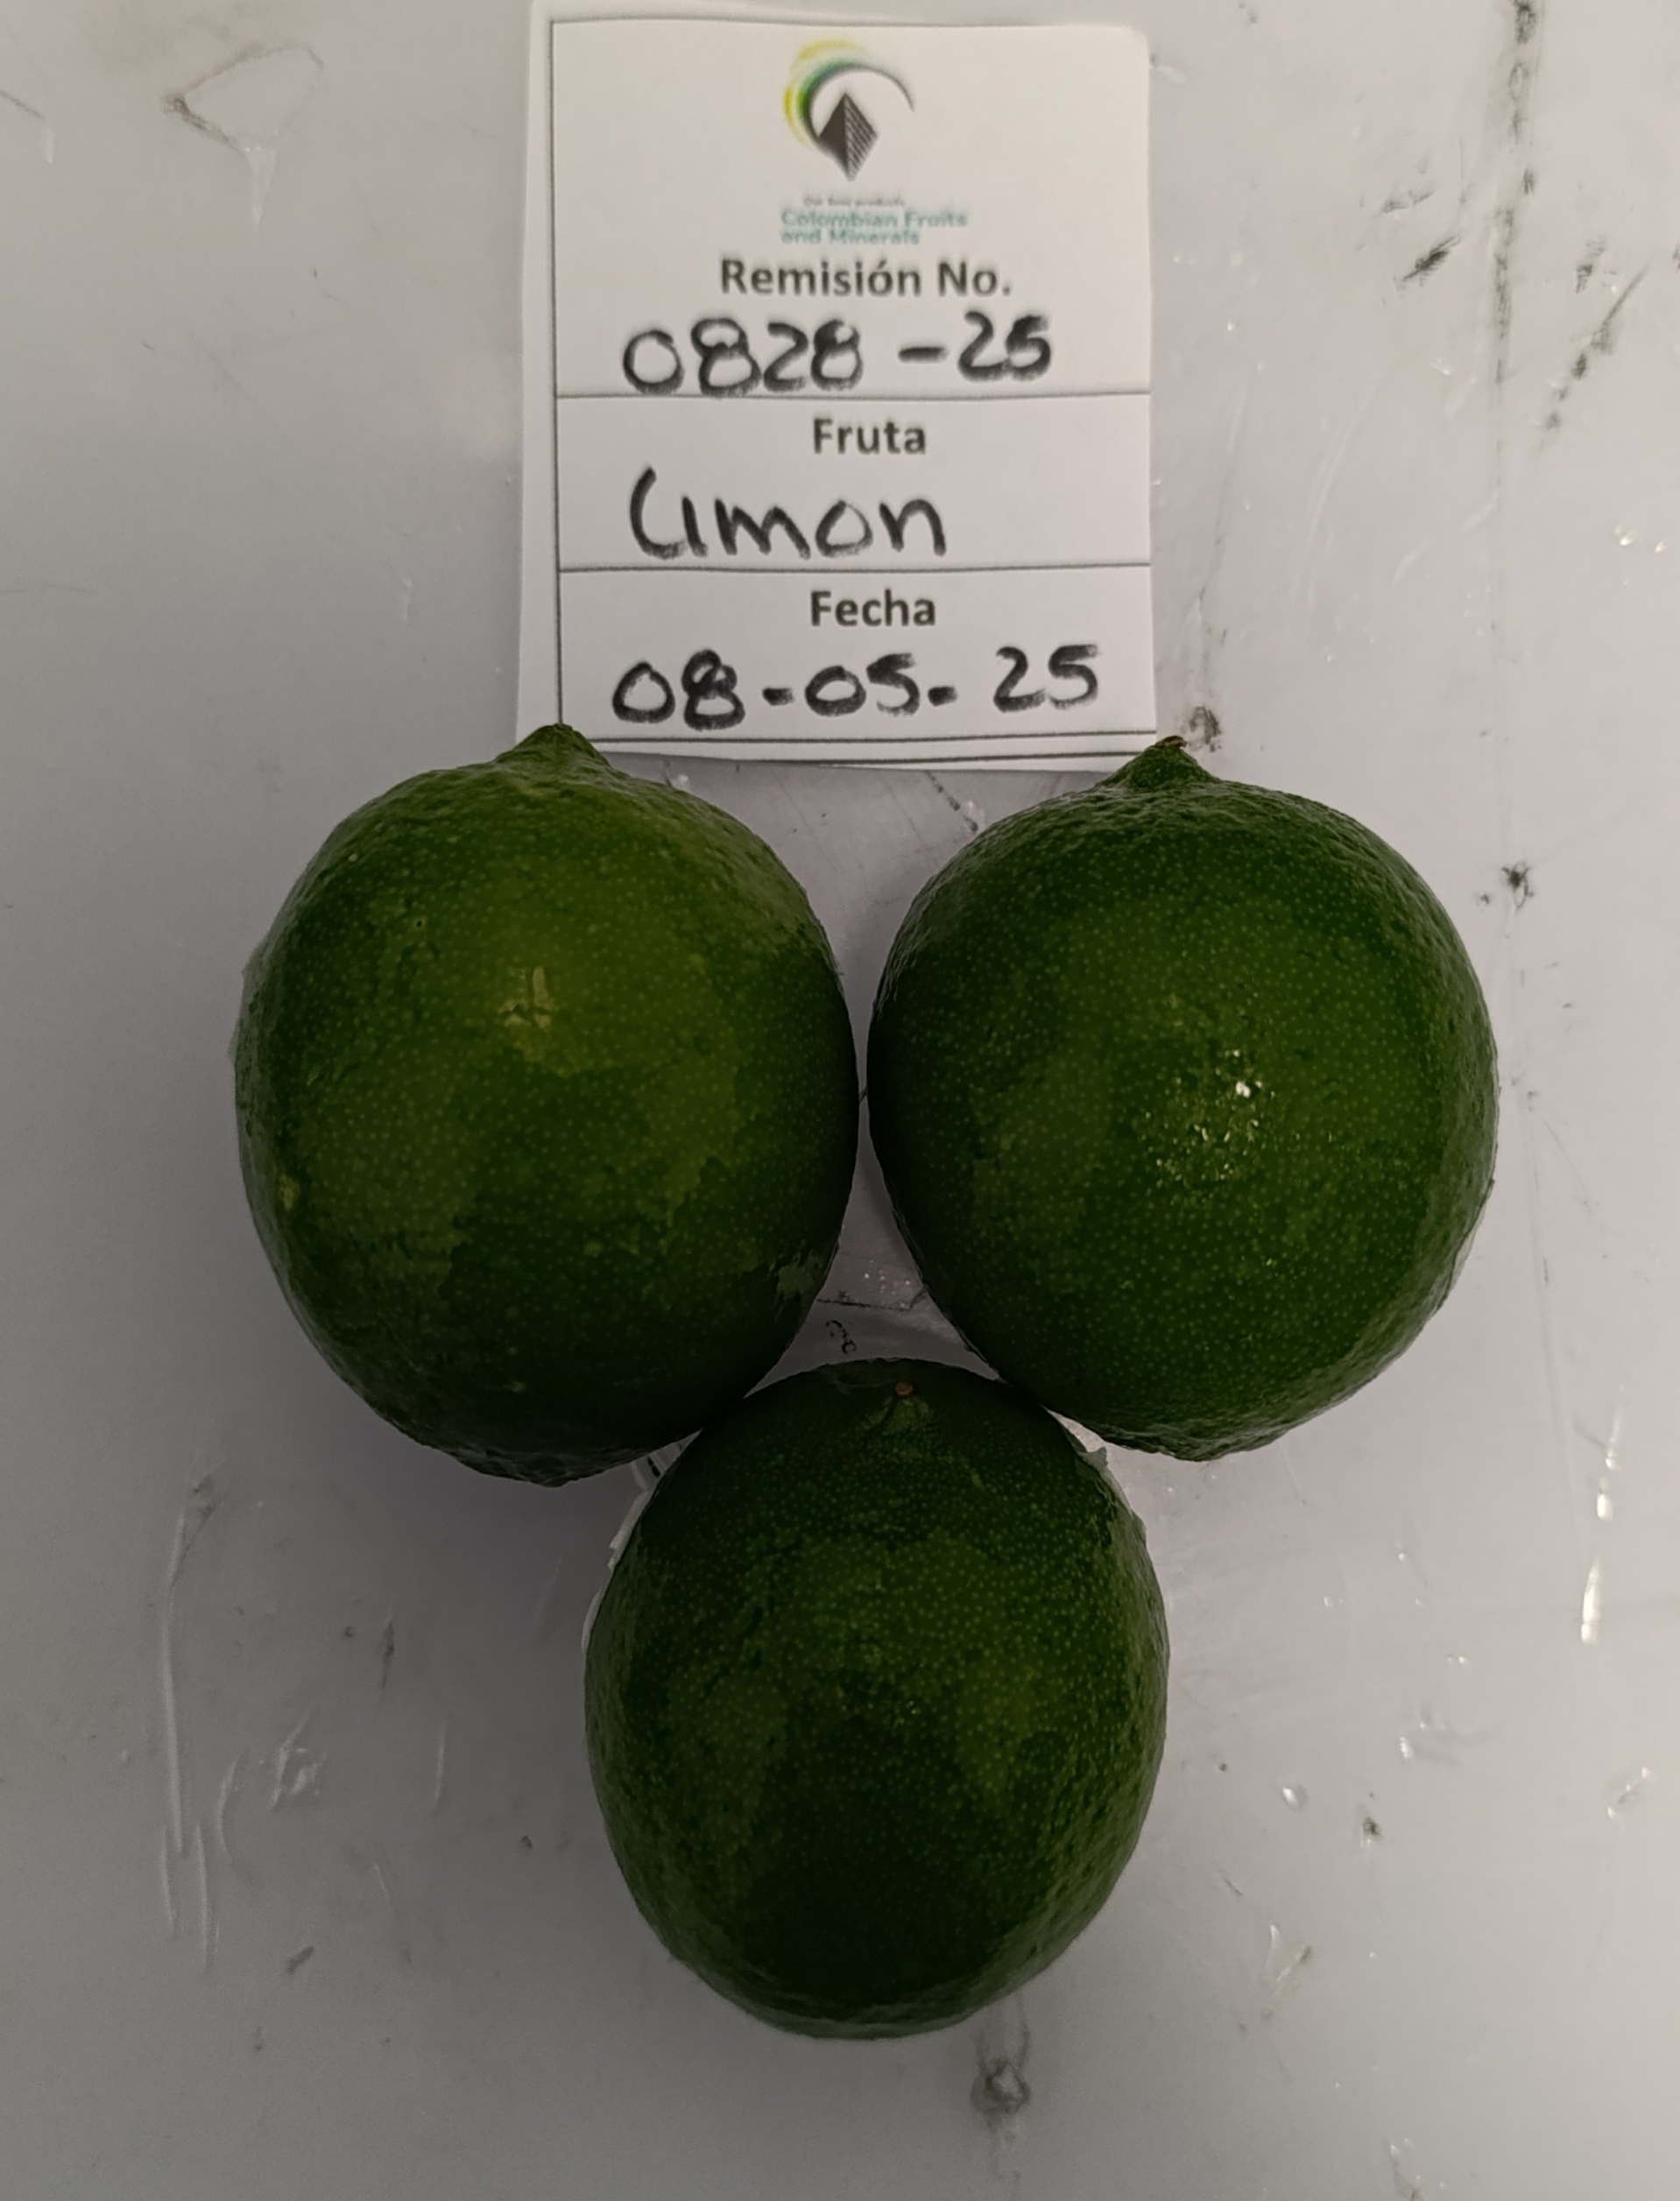 Our best products
Colombian Fruits
and Minerals
Remisión No.
0828-25
Fruta
Limon
Fecha
08-05-25